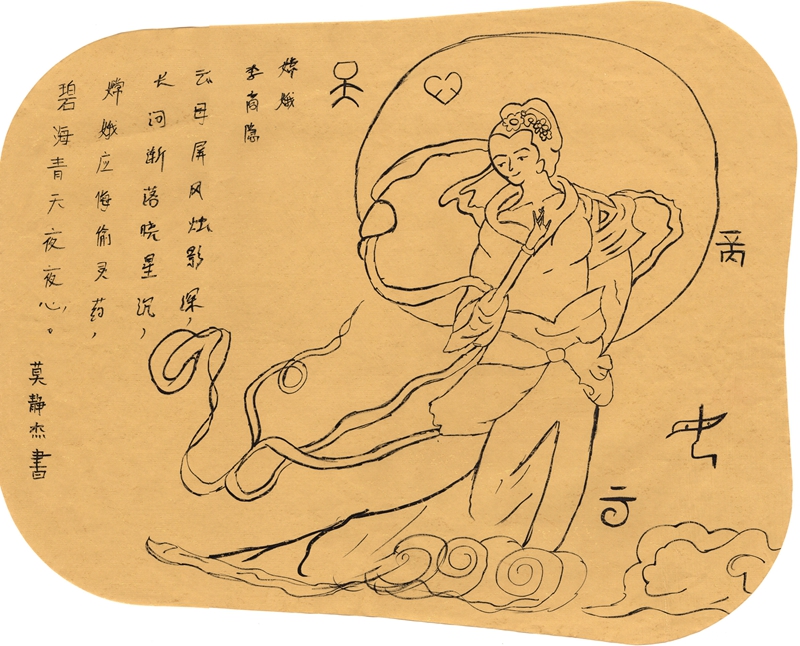 嫦娥
李商隐
云母屏风烛影深，
长河渐落晓星沉，
嫦娥应悔偷灵药，
碧海青天夜夜心。
莫静杰書